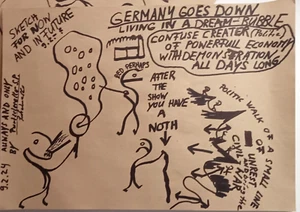 GERMANY GOES DOWN
LIVING IN A DREAM-BUBBLE
SKETCH
FOR NOW
AND IN FUTURE
9.2.24
CONFUSE CREATER
OF POWERFULL ECONOMY
WITH DEMONSTRATION
ALL DAYS LONG
RED PERHAPS
AFTER
THE
SHOW YOU
HAVE A
NOTH
POLITIC WALK
OF A SMALL LINE
OR
UNREST
CIVIL WAR
ALWAYS AND ONLY
BY
9.2.24